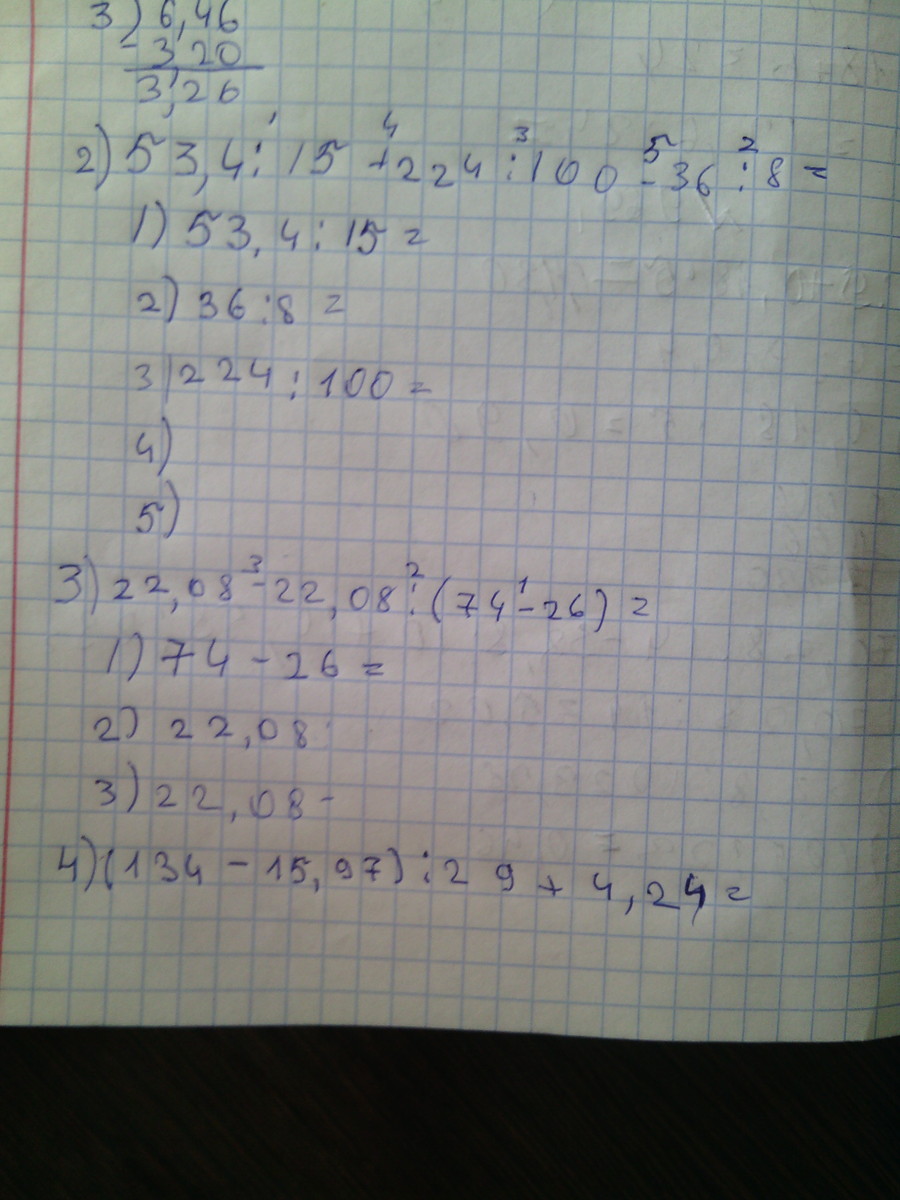 3) 6,46
- 3,20
3,26
1 4 3 5 2
2) 53,4 : 15 + 224 : 100 - 36 : 8 =
1) 53,4 : 15 =
2) 36 : 8 =
3) 224 : 100 =
4)
5)
3 2 1
3) 22,08 - 22,08 : (74 - 26) =
1) 74 - 26 =
2) 22,08
3) 22,08 -
4) (134 - 15,97) : 29 + 4,24 =